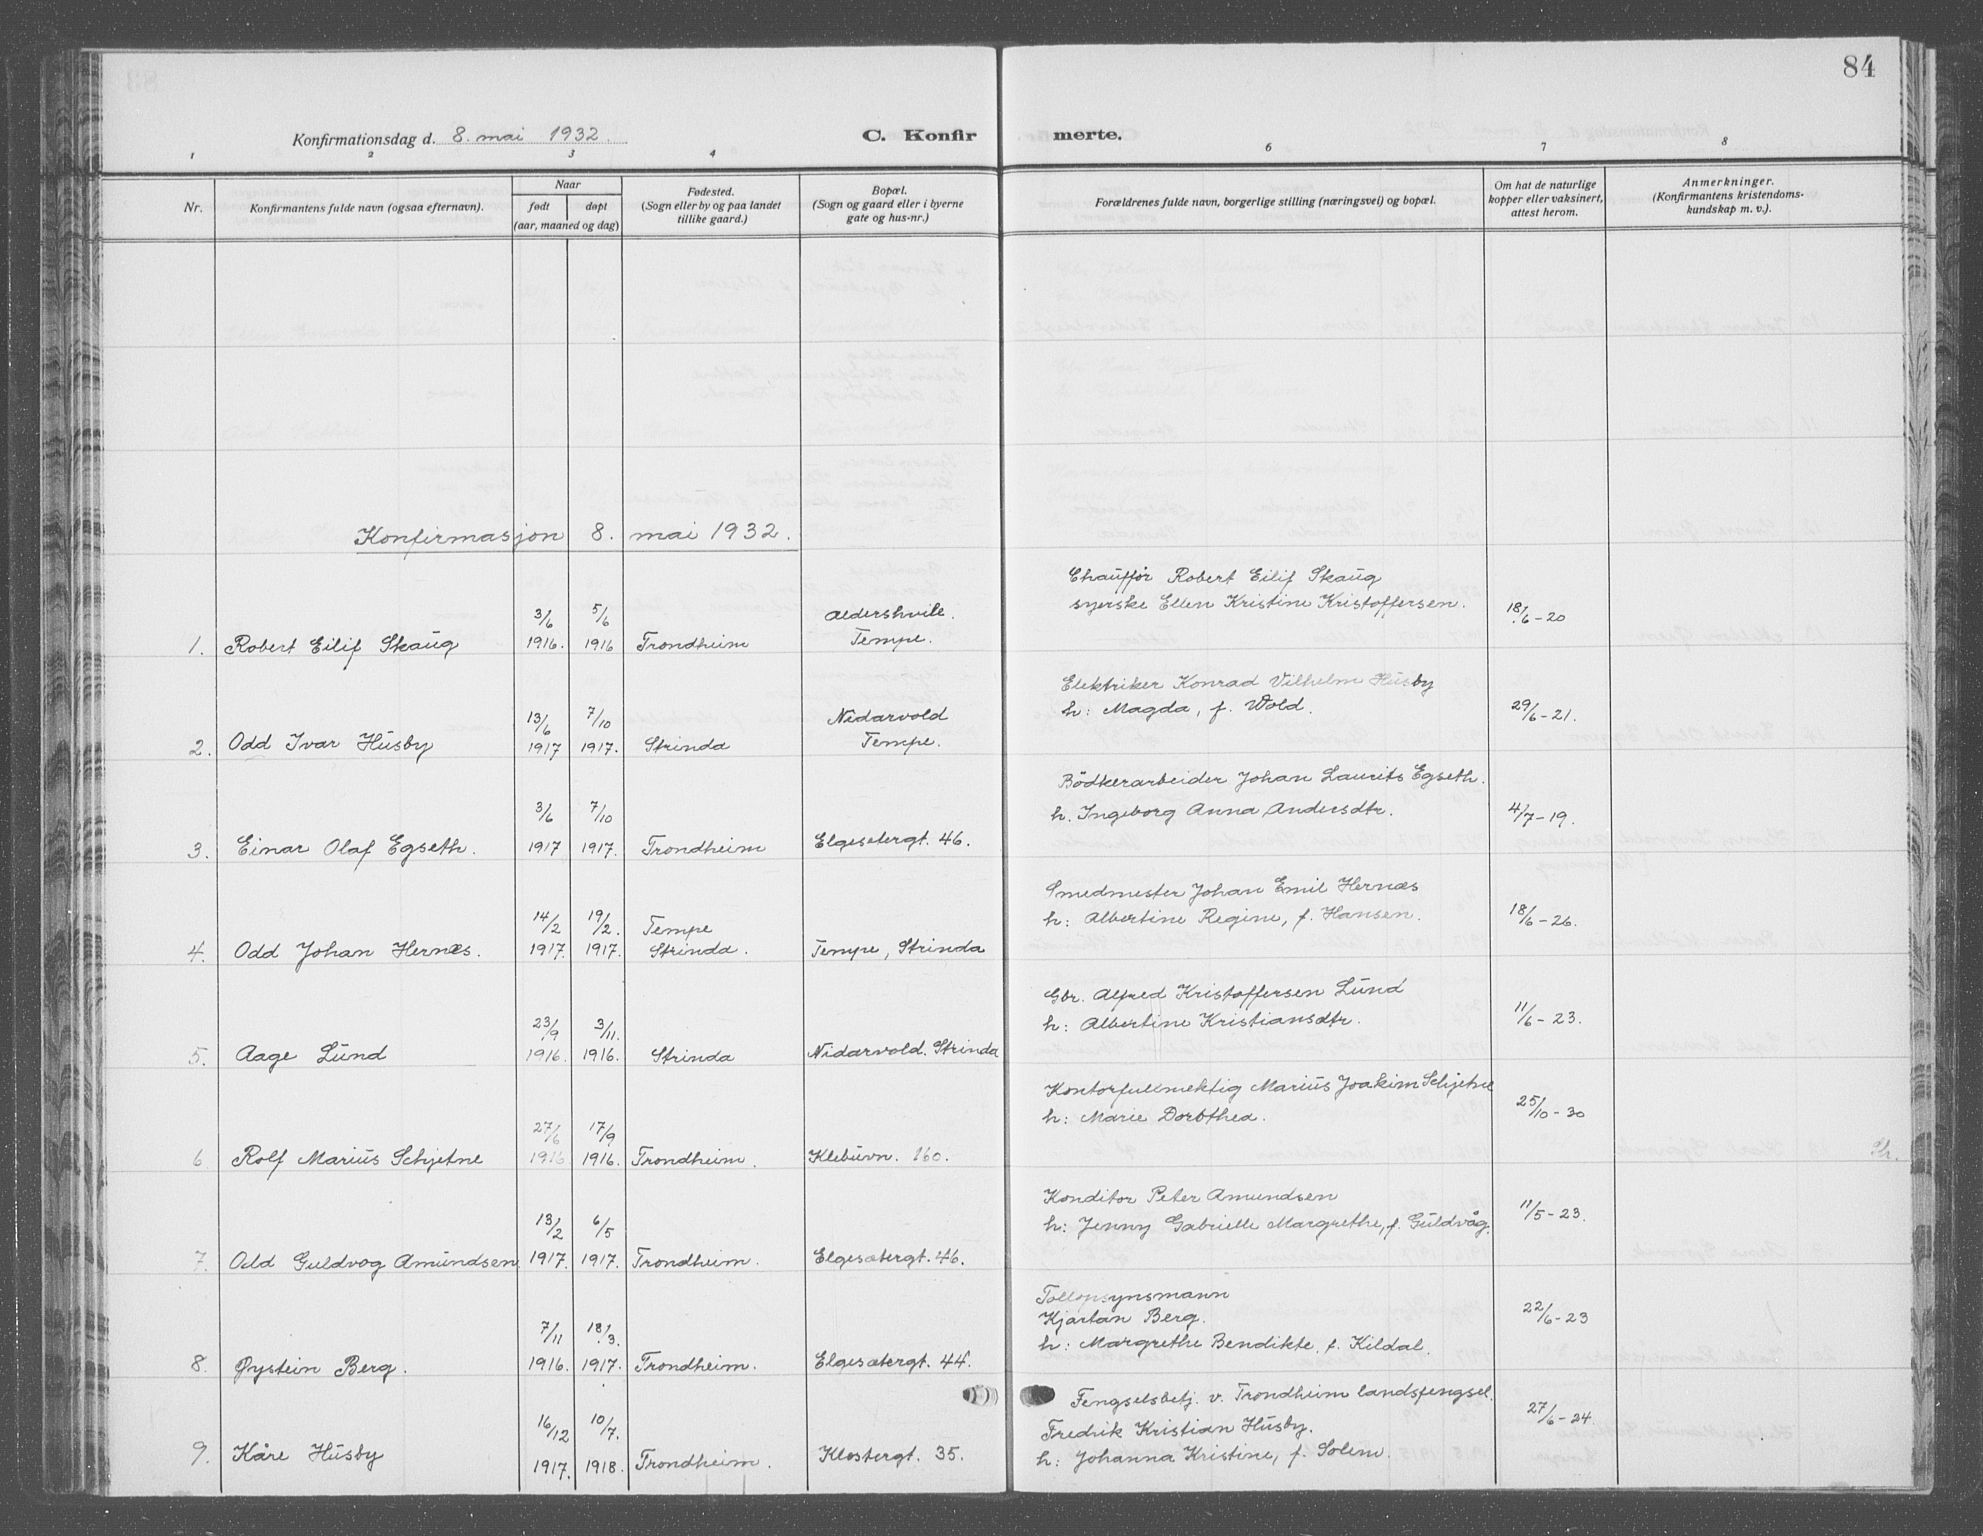 84
Konfirmationsdag d. 8. mai 1932.
C. Konfirmerte.
1 2 3 4 6 7 8
Nr.
Konfirmantens fulde navn (ogsaa efternavn).
Naar
født døpt
(aar, maaned og dag)
Fødested.
(Sogn eller by og paa landet
tillike gaard.)
Bopæl.
(Sogn og gaard eller i byerne
gate og hus-nr.)
Forældrenes fulde navn, borgerlige stilling (næringsvei) og bopæl.
Om hat de naturlige
kopper eller vaksinert,
attest herom.
Anmerkninger.
(Konfirmantens kristendoms-
kundskap m. v.).
Konfirmasjon 8. mai 1932.
Chauffør Robert Eilif Skaug
syerske Ellen Kristine Kristoffersen.
3/6 5/6 Aldershvile. 18/6-20
1. Robert Eilif Skaug 1916. 1916 Trondheim Tempe.
Elektriker Konrad Vilhelm Husby
h: Magda, f. Wold.
13/6 7/10 Nidarvold 29/6-21.
2. Odd Ivar Husby 1917 1917. Strinda Tempe.
Bödkerarbeider Johan Laurits Egseth.
h. Ingeborg Anna Andersdtr.
3/6 7/10 4/7-19.
3. Einar Olaf Egseth. 1917 1917. Trondheim Elgesetergt. 46.
Smedmester Johan Emil Hernæs
h: Albertine Regine, f. Hansen.
14/2 19/2. Tempe 18/6-26.
4. Odd Johan Hernæs. 1917. 1917. Strinda. Tempe, Strinda
Gbr. Alfred Kristoffersen Lund
h: Albertine Kristiansdtr.
23/9 3/11. 11/6-23.
5. Aage Lund 1916. 1916. Strinda Nidarvold. Strinda
Kontorfullmektig Marius Joakim Schjetne
h: Marie Dorothea.
27/6 17/9 25/10-30
6. Rolf Marius Schjetne 1916 1916. Trondheim. Klebuvn. 160.
Konditor Peter Amundsen
h: Jenny Gabrielle Margrethe, f. Guldvåg.
13/2 6/5 11/5-23.
7. Odd Guldvog Amundsen 1917. 1917. Trondheim. Elgesætergt. 46.
Tollopsynsmann
Kjartan Berg.
h: Margrethe Bendikte, f. Kildal.
7/11 18/3. 22/6-23
8. Øystein Berg. 1916. 1917. Trondheim. Elgesætergt. 44.
Fengselsbetj. v. Trondheim landsfengsel.
Fredrik Kristian Husby.
h: Johanna Kristine, f. Solem.
16/12 10/7. 27/6-24.
9. Kåre Husby 1917. 1918. Trondheim. Klostergt. 35.